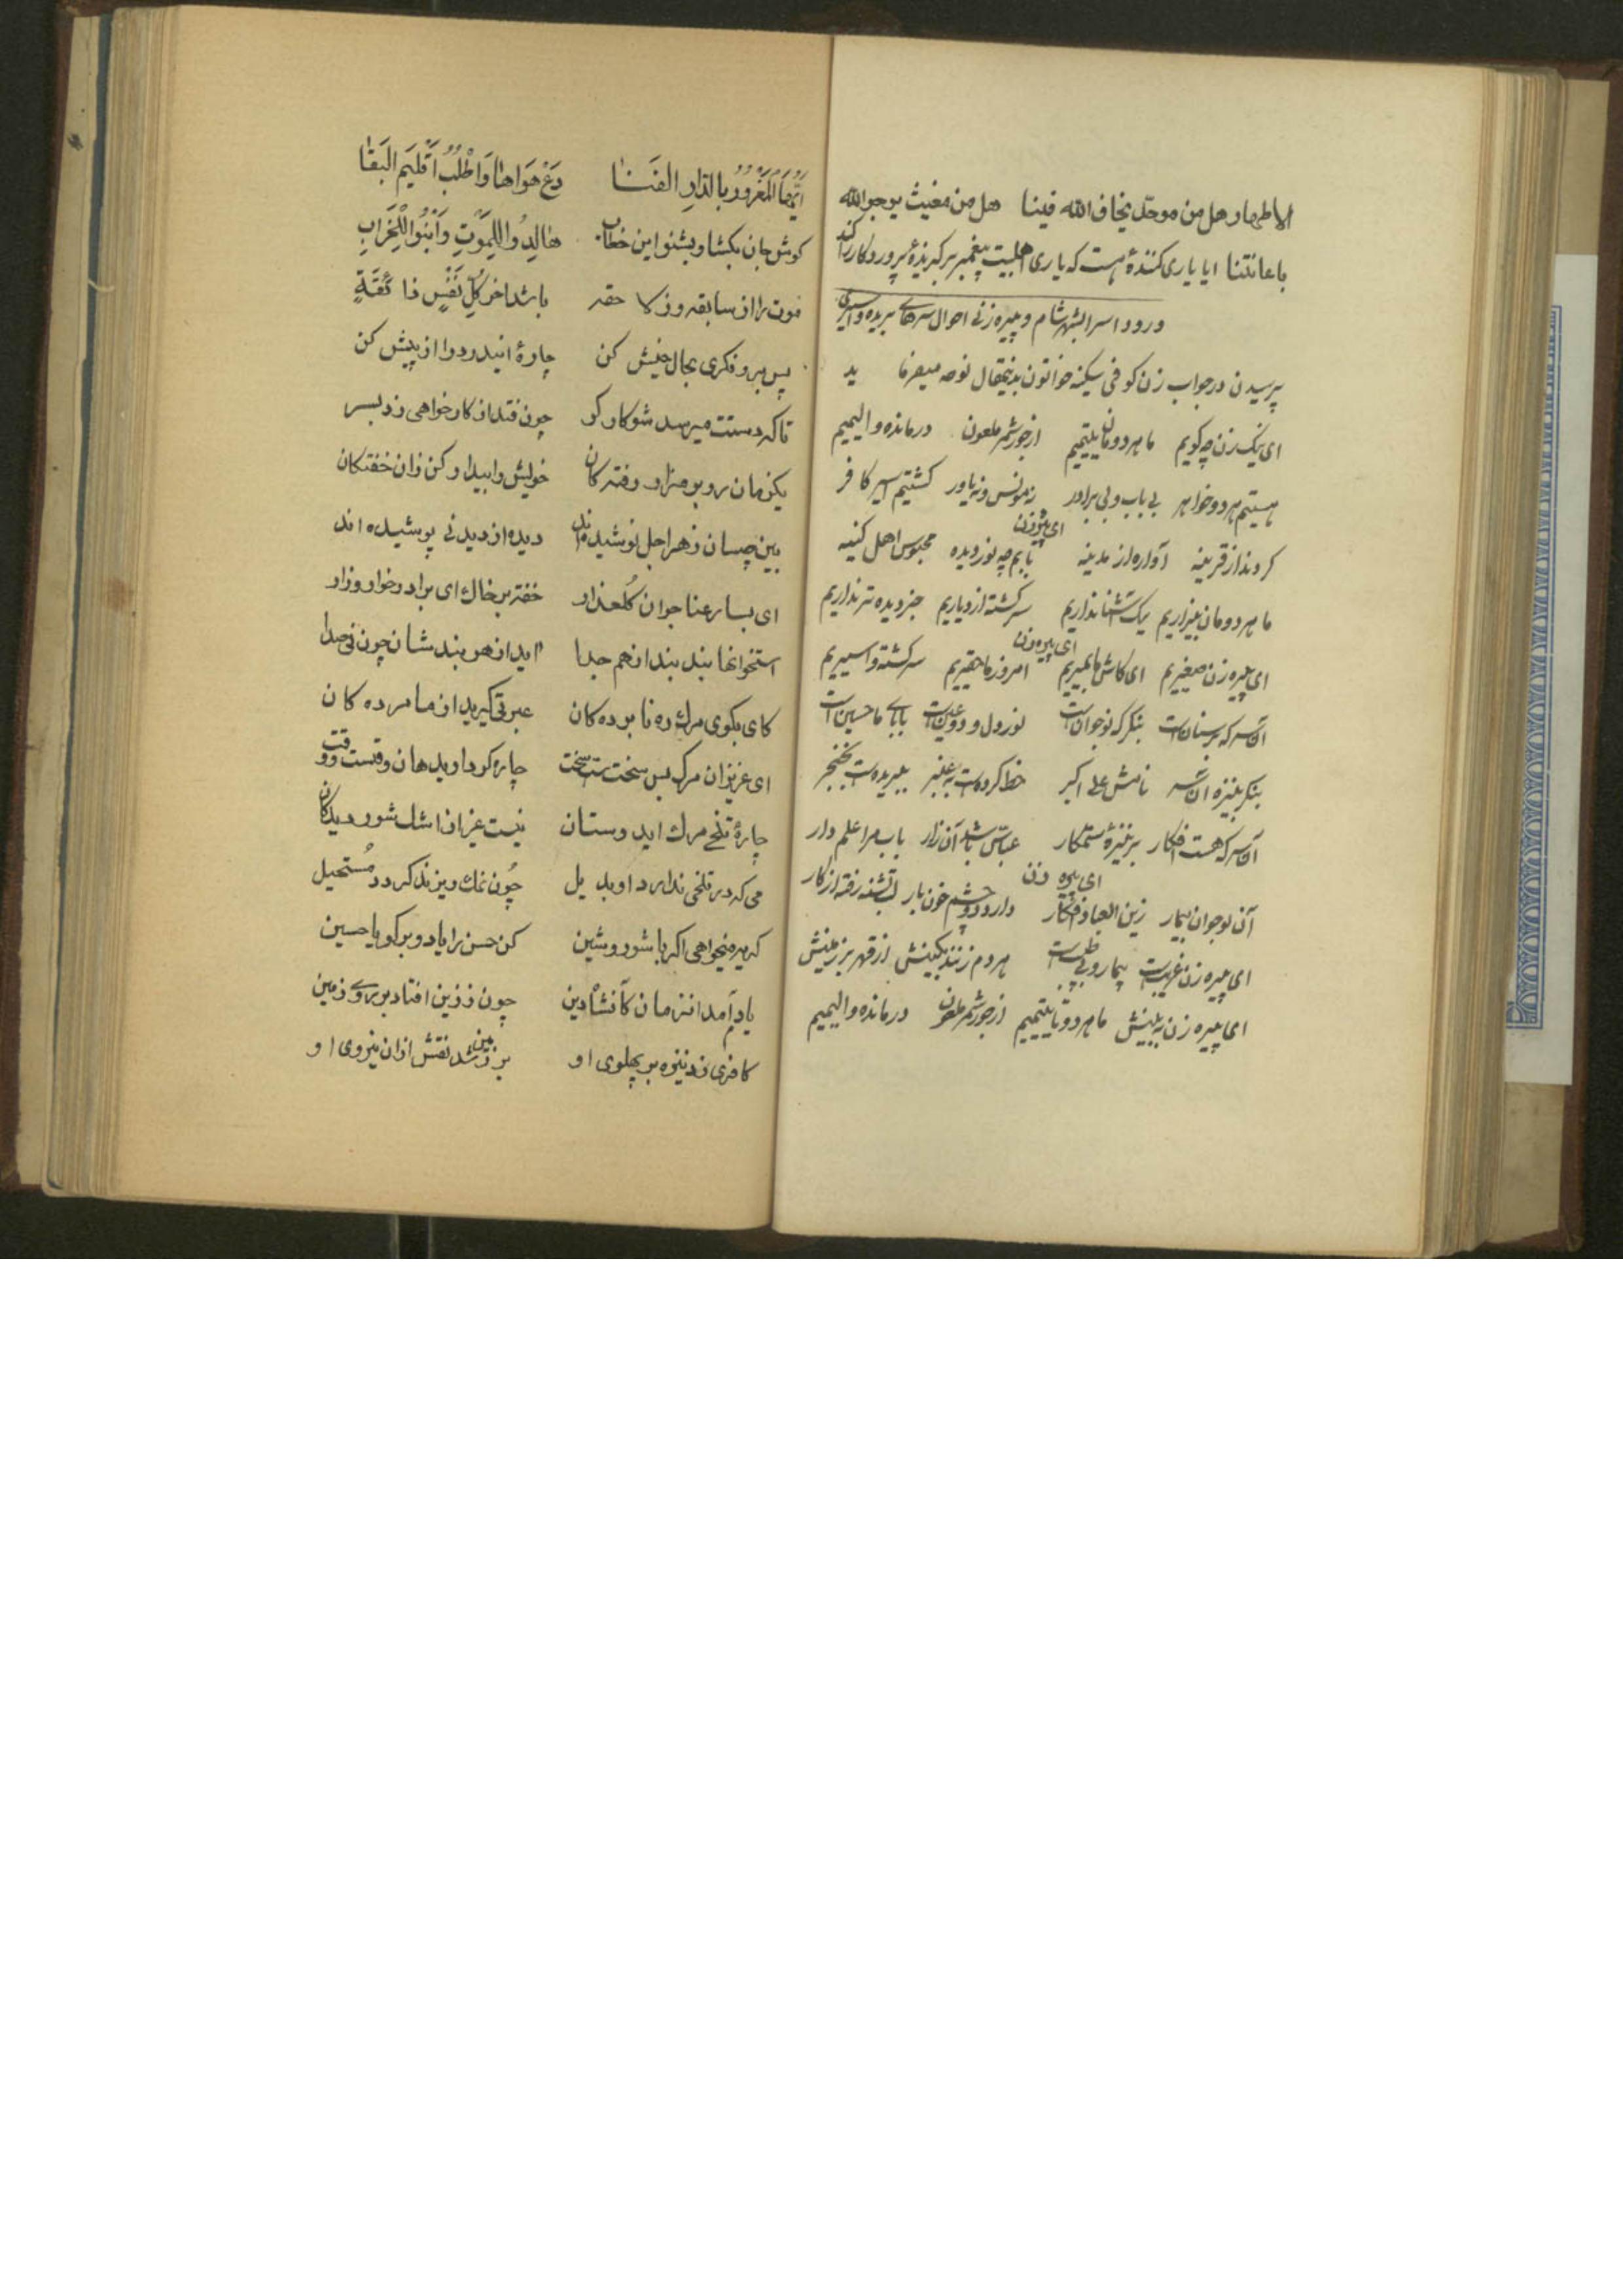 الاطهار هل من موحّد یخاف الله فینا هل من مغیث یرجوالله
باعانتنا ایا یاری کنندهٔ هست که یاری اهلبیت پیغمبر برگزیدهٔ پروردگار را کند
ورود اسرا بشهر شام و پیره زنی احوال سرهای بریده و اسیری
پرسیدن در جواب زن کوفی سکینه خواتون بدینمقال نوحه میفرما ید
ای نیک زن چه کویم ما هر دومان یتیمیم از جور شمر ملعون درمانده و الیمیم
هستیم هر دو خواهر بی باب و بی برادر نه مونس و نه یاور کشتیم اسیر کافر
ای پیره زن
کردند از قرینه آواره از مدینه بابم چه نور دیده محبوس اهل کینه
ما هر دومان بیزاریم یک آشنا نداریم سرکشته از دیاریم جز دیده تر نداریم
ای پیره زن
ای پیره زن صغیریم ای کاش ما بمیریم امروز ما حقیریم سرکشته و اسیریم
آن سر که بر سنان است بنکر که نوجوان است نور دل و دو عین است بابای ما حسین است
بنکر بنیزه آن سر نامش علی اکبر خط کرده است به عنبر ببریده است بخنجر
آن سر که هست افکار بر نیزهٔ ستمکار عبّاس باشد آن زار باب مرا علم دار
ای پیره زن
آن نوجوان بیمار زین العباد افکار دارد دو چشم خون بار لب تشنه رفته از کار
ای پیره زن غریب است بیمار و بی طبیب است هر دم زنند بکینش از قهر بر زمینش
ای پیره زن به بینش ما هر دو تا یتیمیم از جور شمر ملعون درمانده و الیمیم
اَیُّهَا المَغْرُورُ بِالدّارِ الفَنٰا دَعْ هَوَاهٰا وَاطْلُبْ اَقْلیَم البَقٰا
کوش جان بکشا و بشنو این خطاب هٰا لِدُوا لِلمَوْتِ وَابْنُوا لِلْخَرٰابِ
فوت را از سابقه و ز لاحقه باشد اخر کُلّ نَفْسٍ ذائقَةٍ
پس برو فکری بحال خیش کن چارهٔ ایندرد را از پیش کن
تا که دستت میرسد شو کار کر چون فتد از کار خواهی زد بسر
یکزمان رو بر مزار رفته کان خویش را بیدار کن زان خفتکان
بین چسان زهر اجل نوشیده اند دیده از دیدنی پوشیده اند
ای بسا رعنا جوان گلعذار خفته بر خاک ای برادر خوار و زار
استخوانها بند بند از هم جدا اید از هر بند شان چون نی صدا
کای بکوی مرک ره نا برده کان عبرتی گیرید از ما مرده کان
ای عزیزان مرک بس سخت ست سخت چاره کر دارید هان وقتست وقت
چارهٔ تلخی مرک اید وستان نیست غیر از اشک شور دیدکان
می که در تلخی ندارد او بدیل چُون نمک ریزند کردد مُستحیل
کریه میخواهی اکر با شور و شین کن حسن را یاد و برکو یا حسین
یادم آمد انزمان کآنشاه دین چون ز زین افتاد بر روی زمین
کافری زد نیزه بر پهلوی او بر زمین شد نقش ازان نیروی او